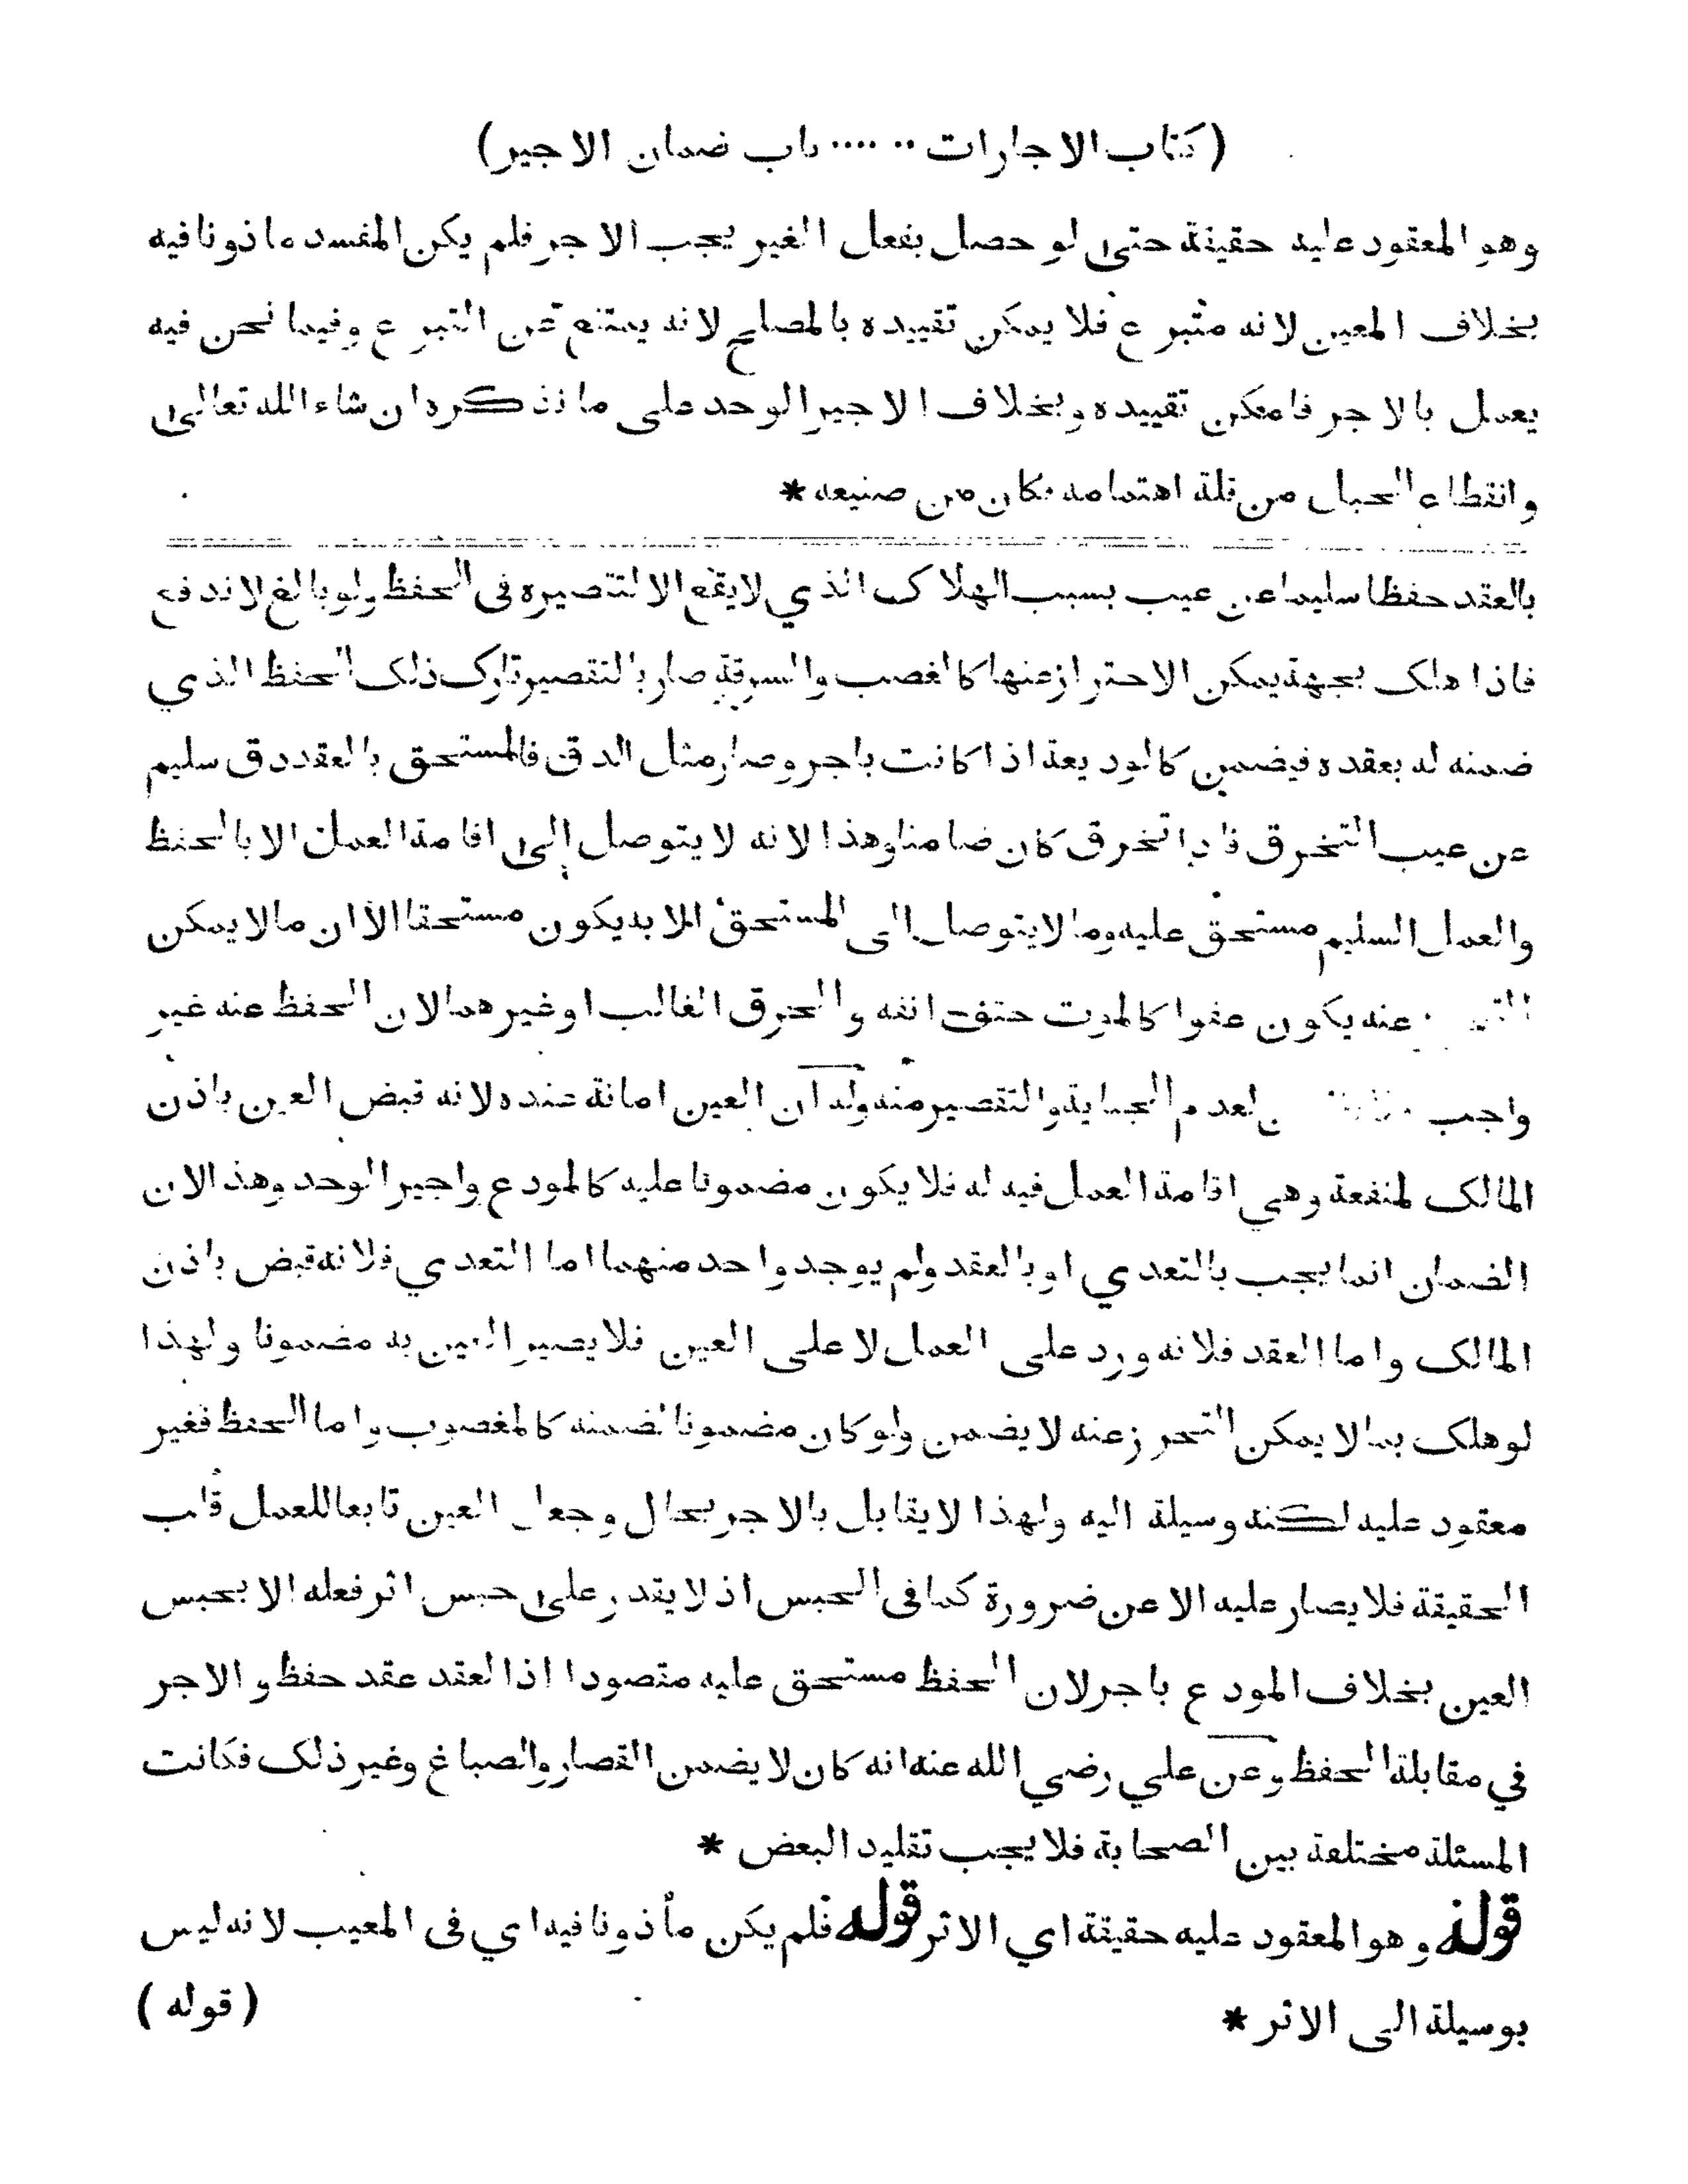 (كتاب الاجارات ‥ ‥‥ باب ضمان الاجير)
وهو المعقود عليه حقيقة حتى لو حصل بفعل الغير يجب الاجر فلم يكن المفسد ماذونا فيه
بخلاف المعين لانه متبرع فلا يمكن تقييده بالمصلح لانه يمتنع عن التبرع وفيما نحن فيه
يعمل بالاجر فامكن تقييده وبخلاف الاجير الوحد على ما نذكره ان شاء الله تعالى
وانقطاع الحبل من قلة اهتمامه فكان من صنيعه *
بالعقد حفظا سليما عن عيب بسبب الهلاك الذي لا يقع الا لتقصيره في الحفظ ولو بالغ لاندفع
فاذا هلك بجهة يمكن الاحتراز عنها كالغصب والسرقة صار بالتقصير تارك ذلك الحفظ الذي
ضمنه له بعقده فيضمن كالوديعة اذا كانت باجر وصار مثل الدق فالمستحق بالعقد دق سليم
عن عيب التخرق فاذا تخرق كان ضامنا وهذا لانه لا يتوصل الى اقامة العمل الا بالحفظ
والعمل السليم مستحق عليه وما لا يتوصل الى المستحق الا به يكون مستحقا الا ان ما لا يمكن
عنه يكون عفوا كالموت حتف انفه والحرق الغالب او غيرهما لان الحفظ عنه غير
واجب لعدم الجناية والتقصير منه وله ان العين امانة عنده لانه قبض العين باذن
المالك لمنفعة وهي اقامة العمل فيه له فلا يكون مضمونا عليه كالمودع واجير الوحد وهذا لان
الضمان انما يجب بالتعدي او بالعقد ولم يوجد واحد منهما اما التعدي فلانه قبض باذن
المالك واما العقد فلانه ورد على العمل لا على العين فلا يصير العين به مضمونا ولهذا
لو هلك بما لا يمكن التحرز عنه لا يضمن ولو كان مضمونا لضمنه كالمغصوب واما الحفظ فغير
معقود عليه لكنه وسيلة اليه ولهذا لا يقابل بالاجر بحال وجعل العين تابعا للعمل قلب
الحقيقة فلا يصار عليه الا عن ضرورة كما في الحبس اذ لا يقدر على حبس اثر فعله الا بحبس
العين بخلاف المودع باجر لان الحفظ مستحق عليه مقصودا اذ العقد عقد حفظ والاجر
في مقابلة الحفظ وعن علي رضي الله عنه انه كان لا يضمن القصار والصباغ وغير ذلك فكانت
المسئلة مختلفة بين الصحابة فلا يجب تقليد البعض *
قوله وهو المعقود عليه حقيقة اي الاثر قوله فلم يكن مأذونا فيه اي في المعيب لانه ليس
بوسيلة الى الاثر *
(قوله)